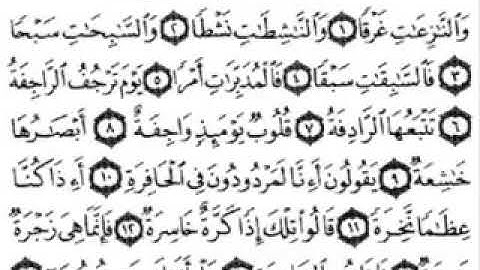 وَالنَّٰزِعَٰتِ غَرْقًا ١ وَالنَّٰشِطَٰتِ نَشْطًا ٢ وَالسَّٰبِحَٰتِ سَبْحًا
٣ فَالسَّٰبِقَٰتِ سَبْقًا ٤ فَالْمُدَبِّرَٰتِ أَمْرًا ٥ يَوْمَ تَرْجُفُ الرَّاجِفَةُ
٦ تَتْبَعُهَا الرَّادِفَةُ ٧ قُلُوبٌ يَوْمَئِذٍ وَاجِفَةٌ ٨ أَبْصَٰرُهَا
خَٰشِعَةٌ ٩ يَقُولُونَ أَءِنَّا لَمَرْدُودُونَ فِي الْحَافِرَةِ ١٠ أَءِذَا كُنَّا
عِظَٰمًا نَّخِرَةً ١١ قَالُوا۟ تِلْكَ إِذًا كَرَّةٌ خَاسِرَةٌ ١٢ فَإِنَّمَا هِيَ زَجْرَةٌ